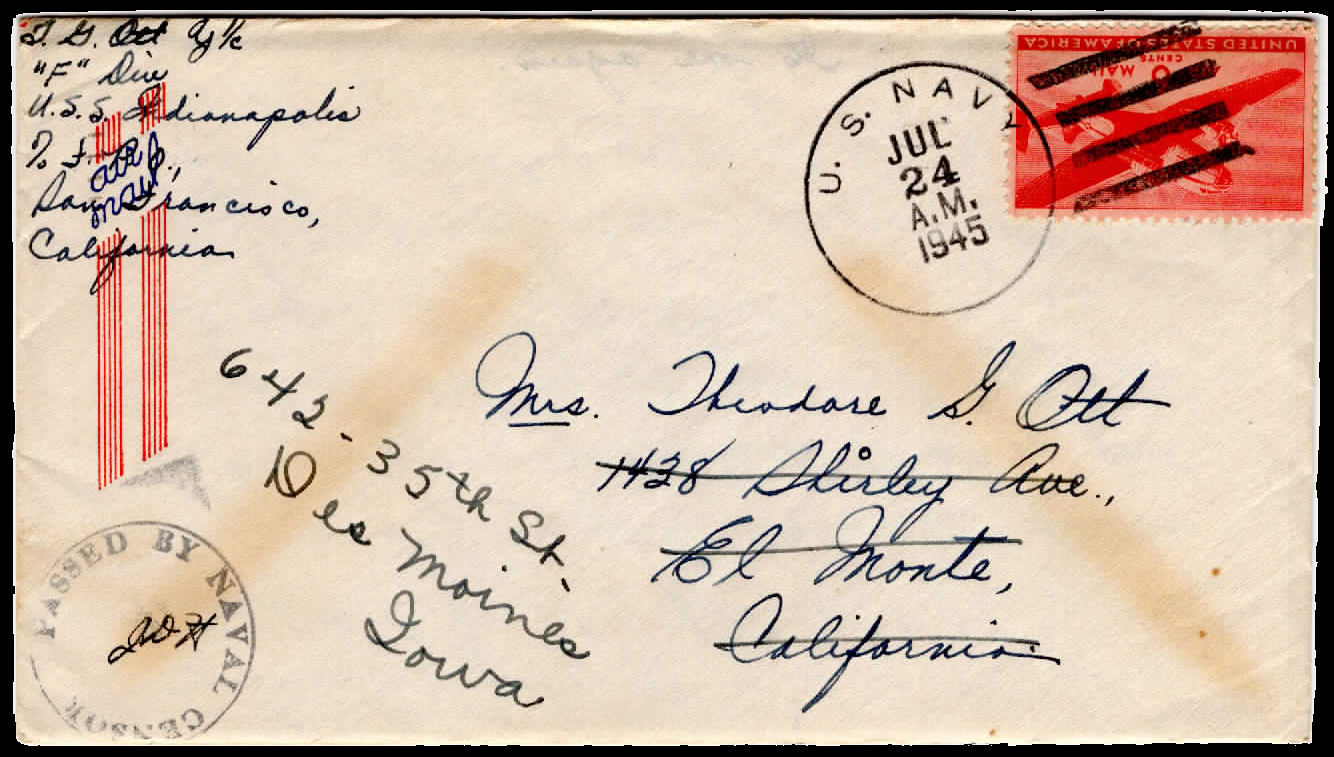 T. G. Ott Y 1/c
"F" Div
U.S.S. Indianapolis
% F.P.O.,
San Francisco,
California
air
mail
U. S. NAVY
JUL
24
A.M.
1945
UNITED STATES OF AMERICA
6
CENTS
MAIL
Mrs. Theodore G. Ott
1428 Shirley Ave.,
El Monte,
California.
642 - 35th St.
Des Moines
Iowa
PASSED BY NAVAL CENSOR
JDH